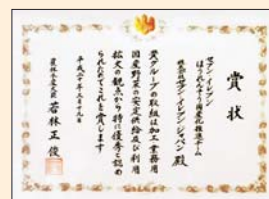 賞状
セブン-イレブン
ほうれんそう国産化推進チーム
株式会社セブン-イレブン・ジャパン殿
貴グループの取組は加工業務用
国産野菜の安定供給及び利用
拡大の観点から特に優秀と認め
られたのでこれを賞します
平成二十年三月十九日
農林水産大臣 若林正俊